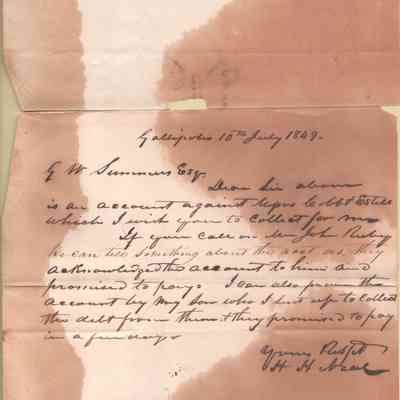 Gallipolis 10th July 1849.
G W Summers Esq.
Dear Sir above
is an account against Messrs Cobbt Estill
which I wish you to collect for me
If you call on Mr John Ruby
he can tell something about the acct as they
acknowledged the account to him and
promised to pay. I can also prove the
account by my Son who I sent up to Collect
the debt from them & they promised to pay
in a few days
Yours Respt
H H Neal